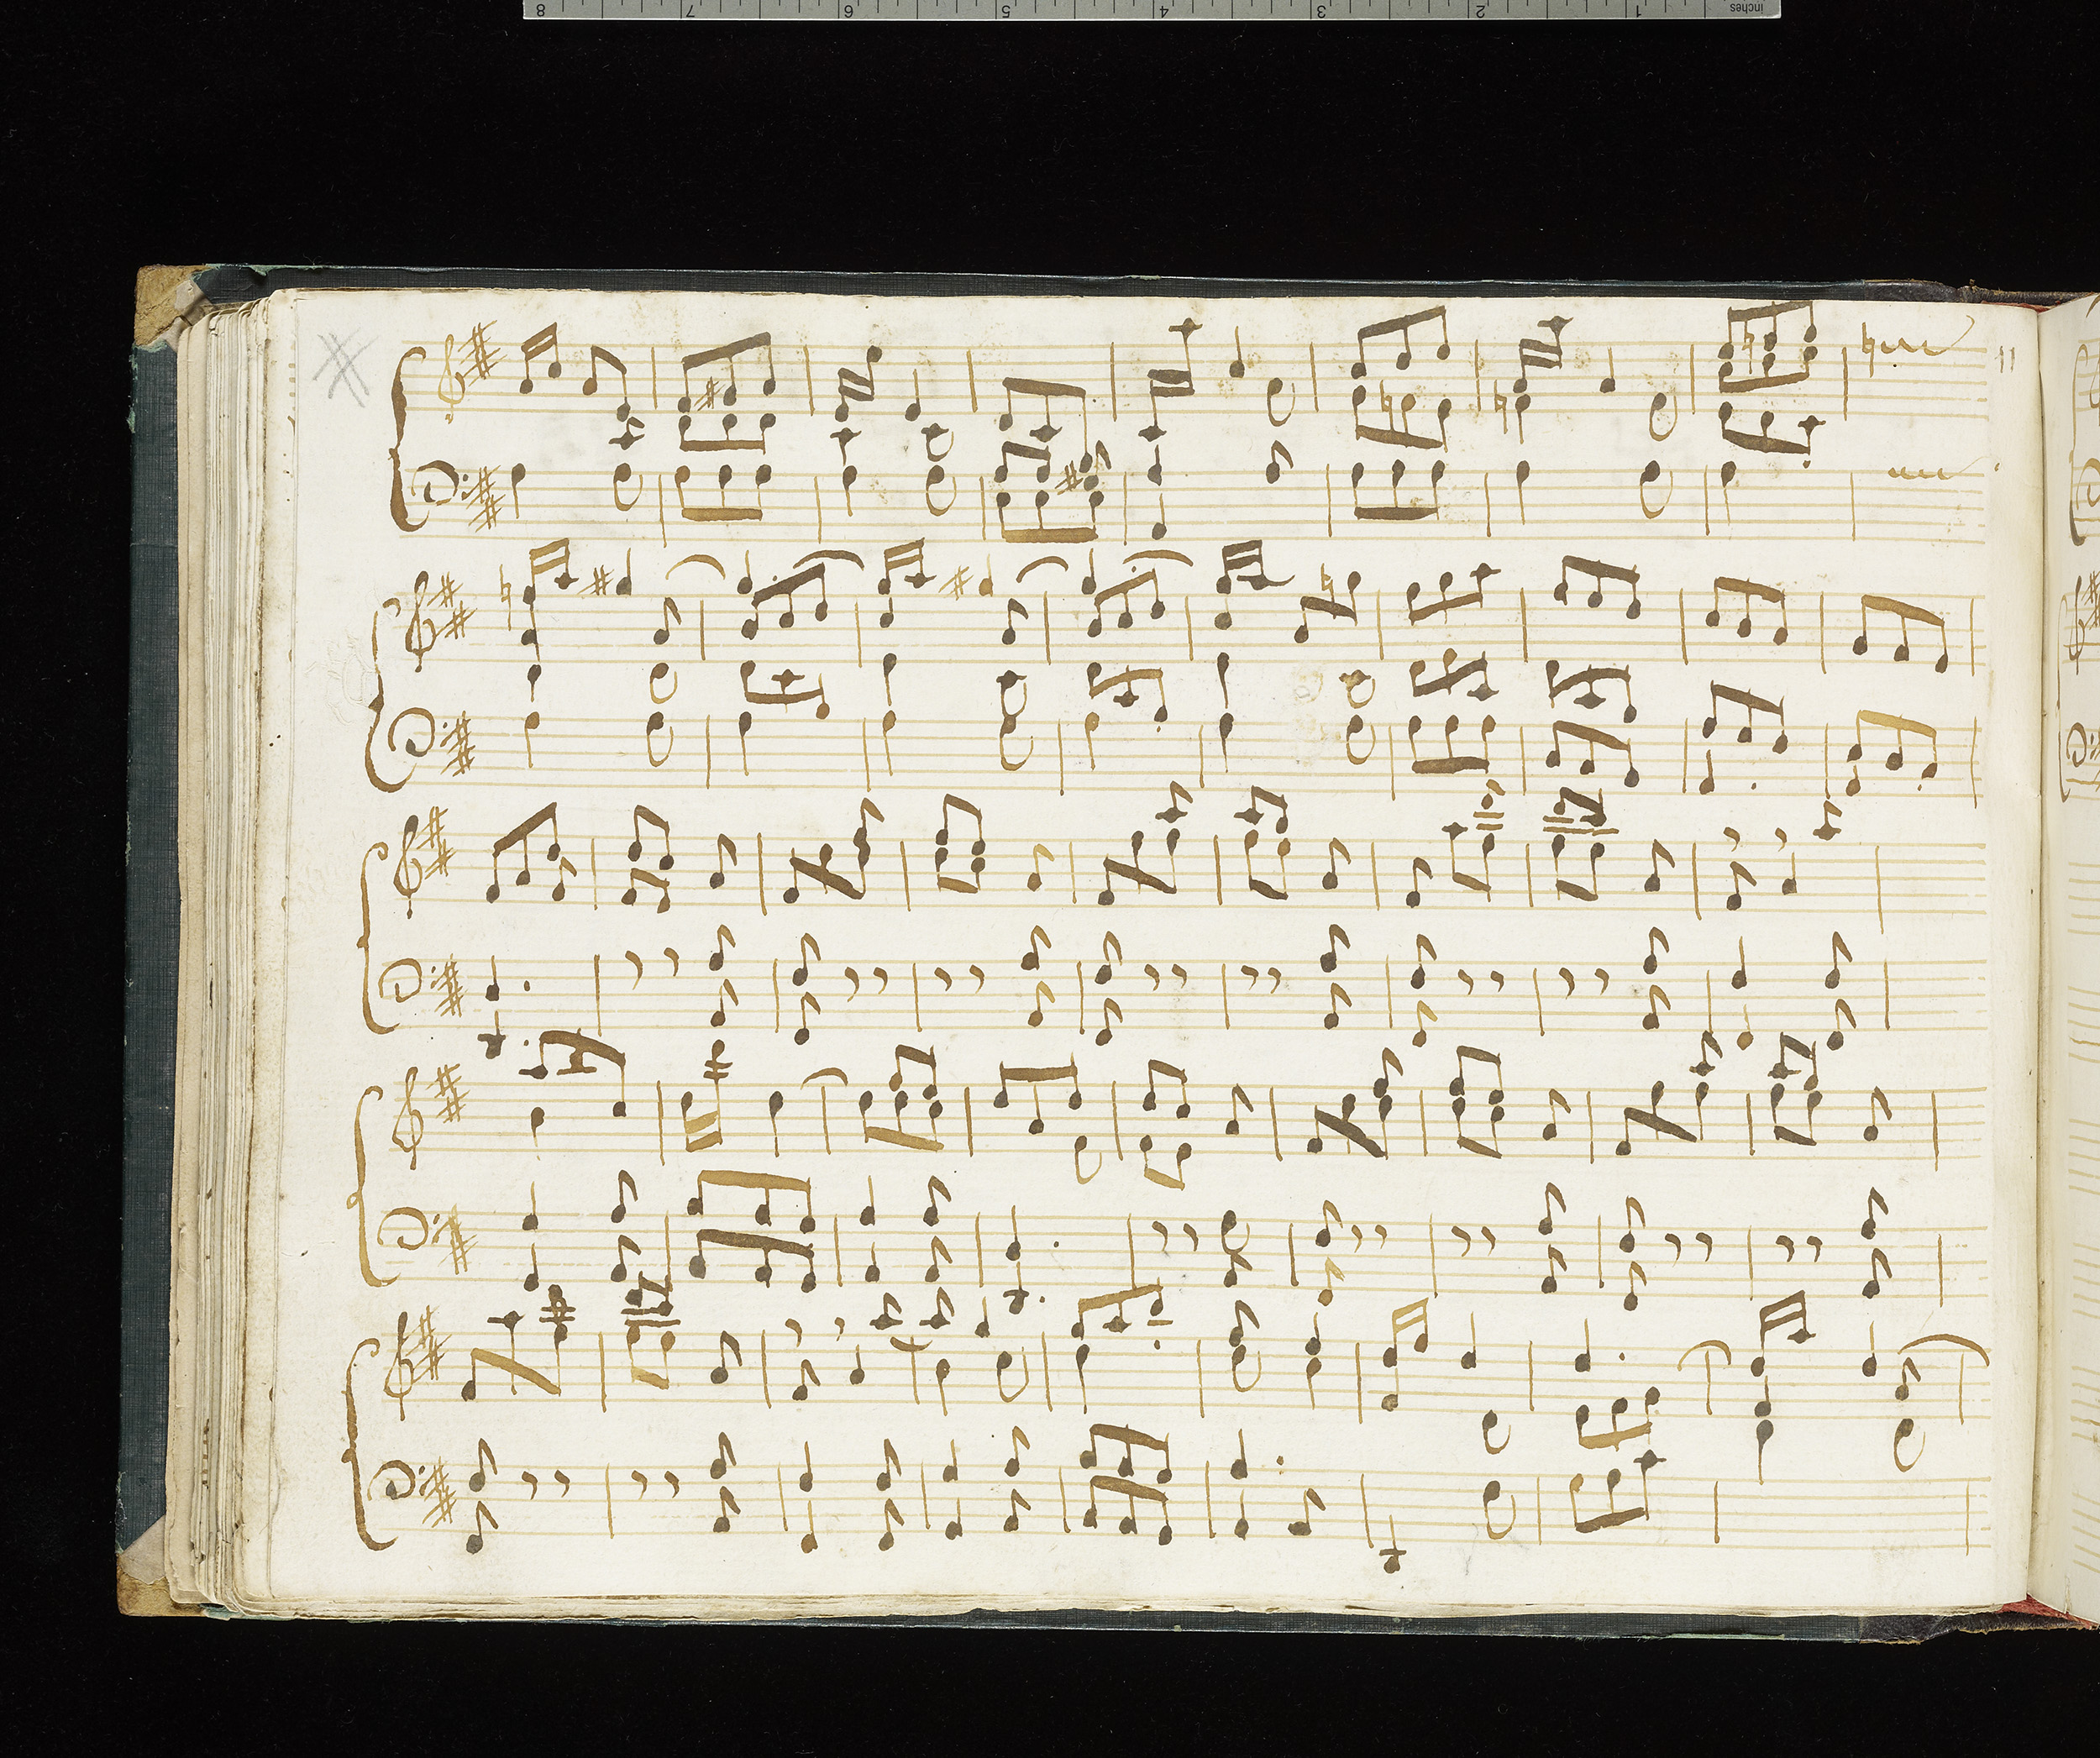 8 7 6 5 4 3 2 1 inches
11